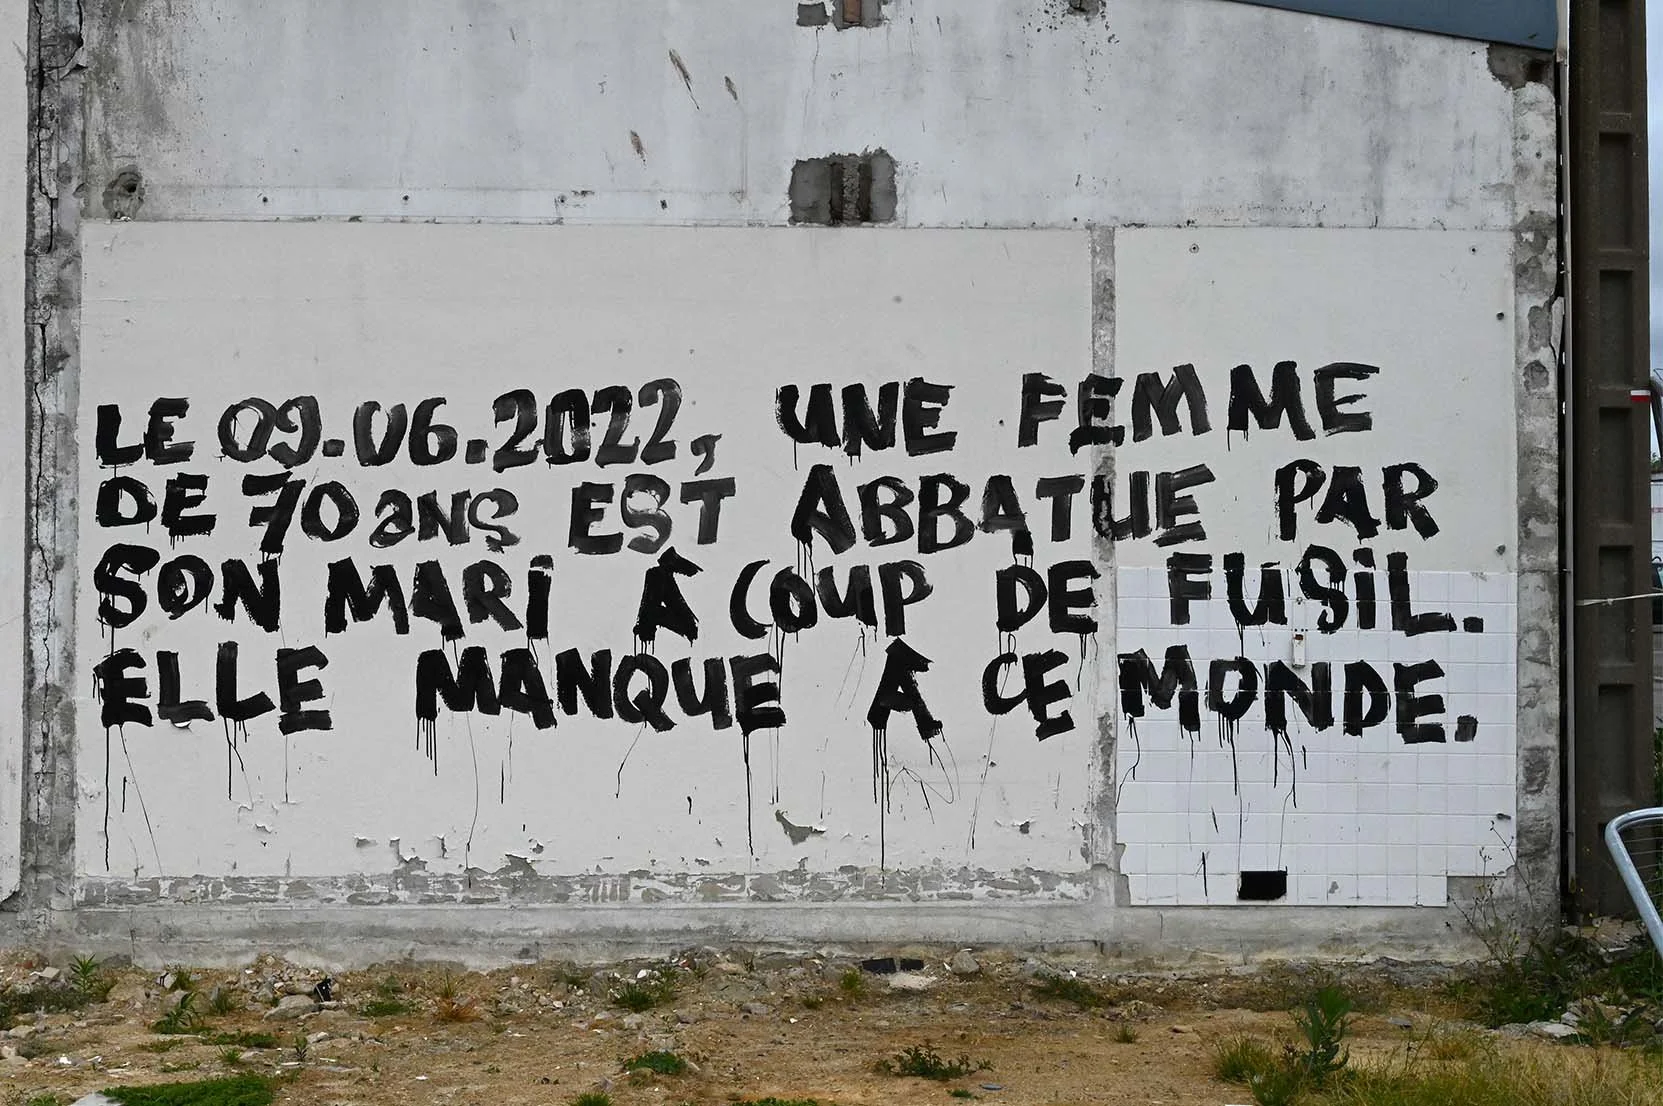 LE 09.06.2022, UNE FEMME
DE 70 ans EST ABBATUE PAR
SON MARi À COUP DE FUSiL.
ELLE MANQUE À CE MONDE.